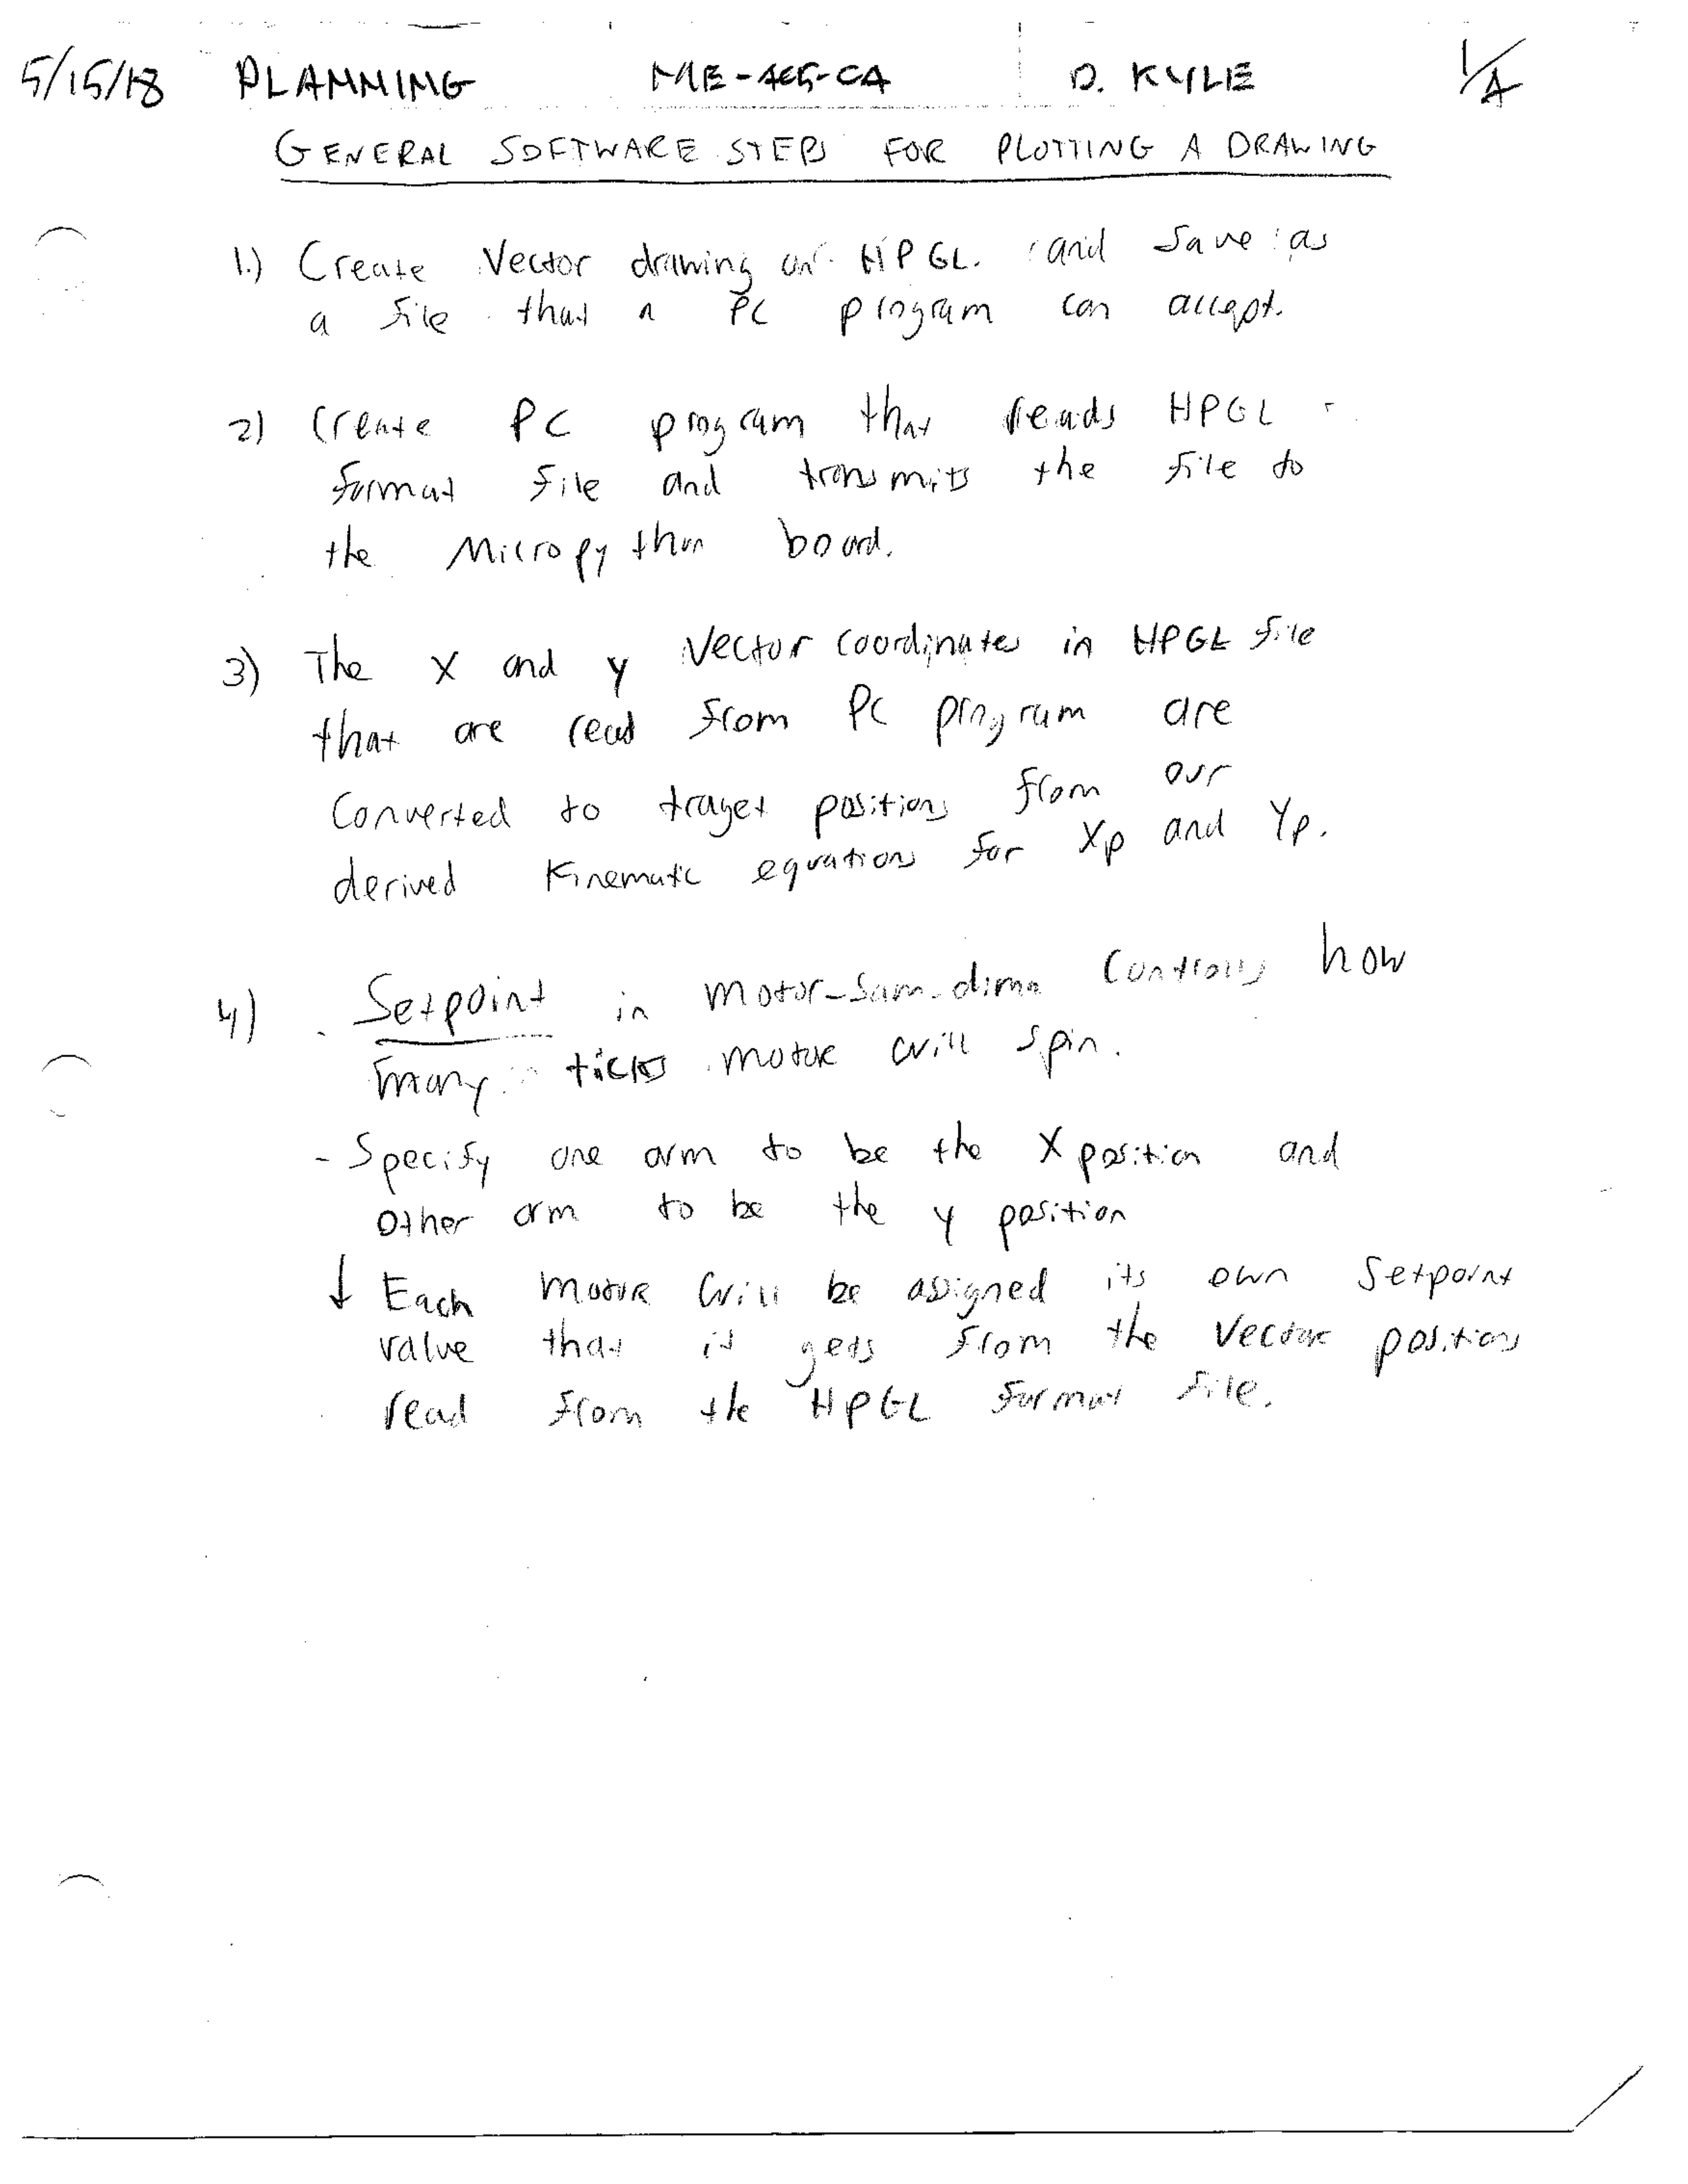 5/15/18 PLANNING ME-405-04 D. KYLE 1/4
GENERAL SOFTWARE STEPS FOR PLOTTING A DRAWING
1.) Create Vector drawing on HPGL. and Save as
a file that a PC program can accept.
2) Create PC program that reads HPGL
format file and transmits the file to
the Micropython board.
3) The X and y Vector coordinates in HPGL file
that are read from PC program are
Converted to traget positions from our
derived Kinematic equations for Xp and Yp.
4) Setpoint in motor-sam-dima Controls how
many ticks motor will spin.
- Specify one arm to be the X position and
other arm to be the y position
↓ Each motor will be assigned its own Setpoint
value that it gets from the Vector positions
read from the HPGL format file.